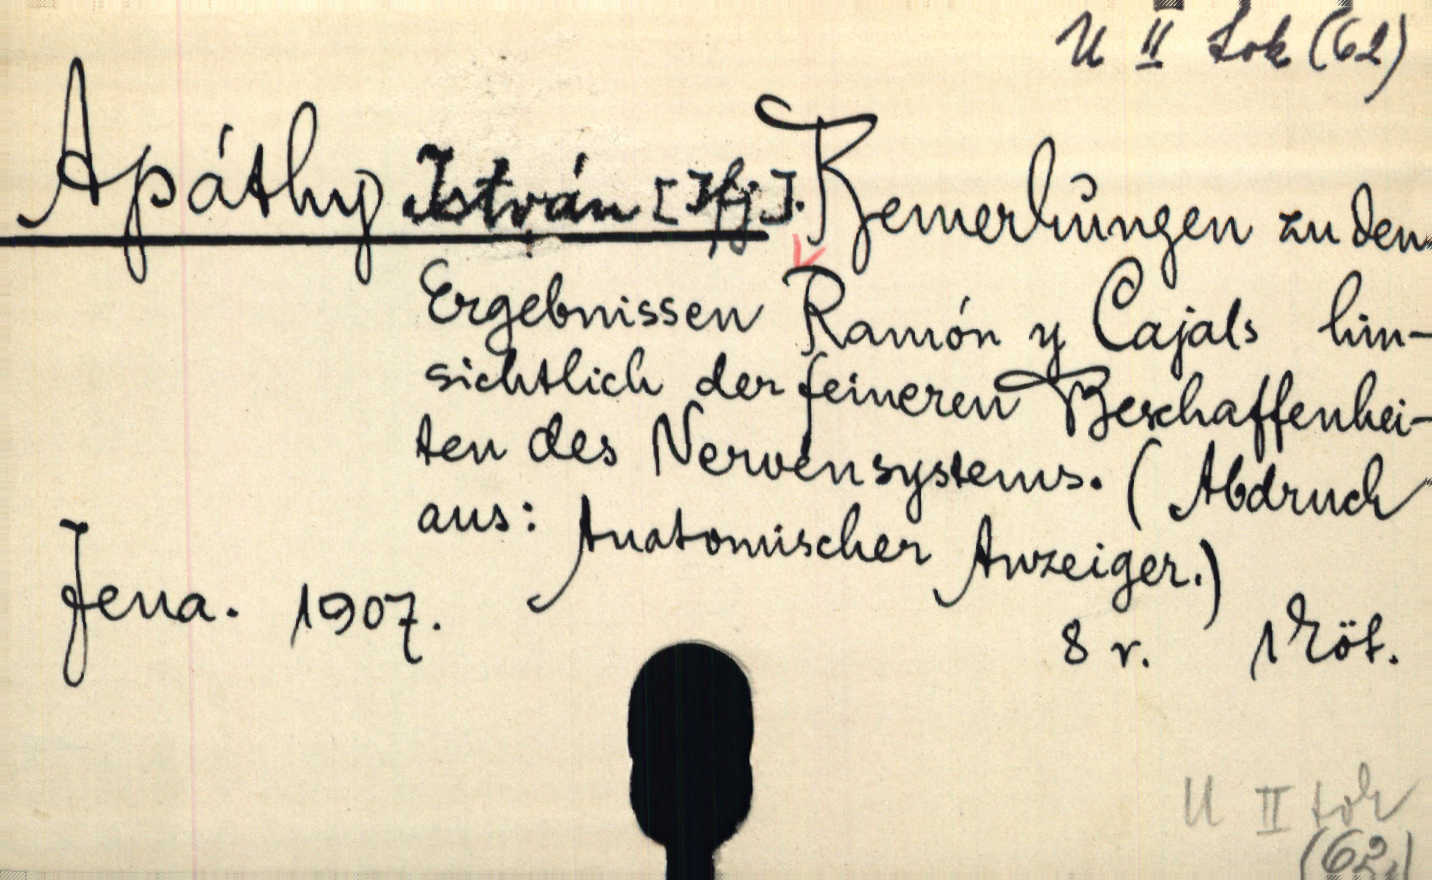 U II tok (62)
Apáthy István [Ifj]. Bemerkungen zu den
Ergebnissen Ramón y Cajals hin-
sichtlich der feineren Beschaffenhei-
ten des Nervensystems. (Abdruck
aus: Anatomischer Anzeiger.)
Jena. 1907.
8 r. 1 köt.
U II tok
(62)